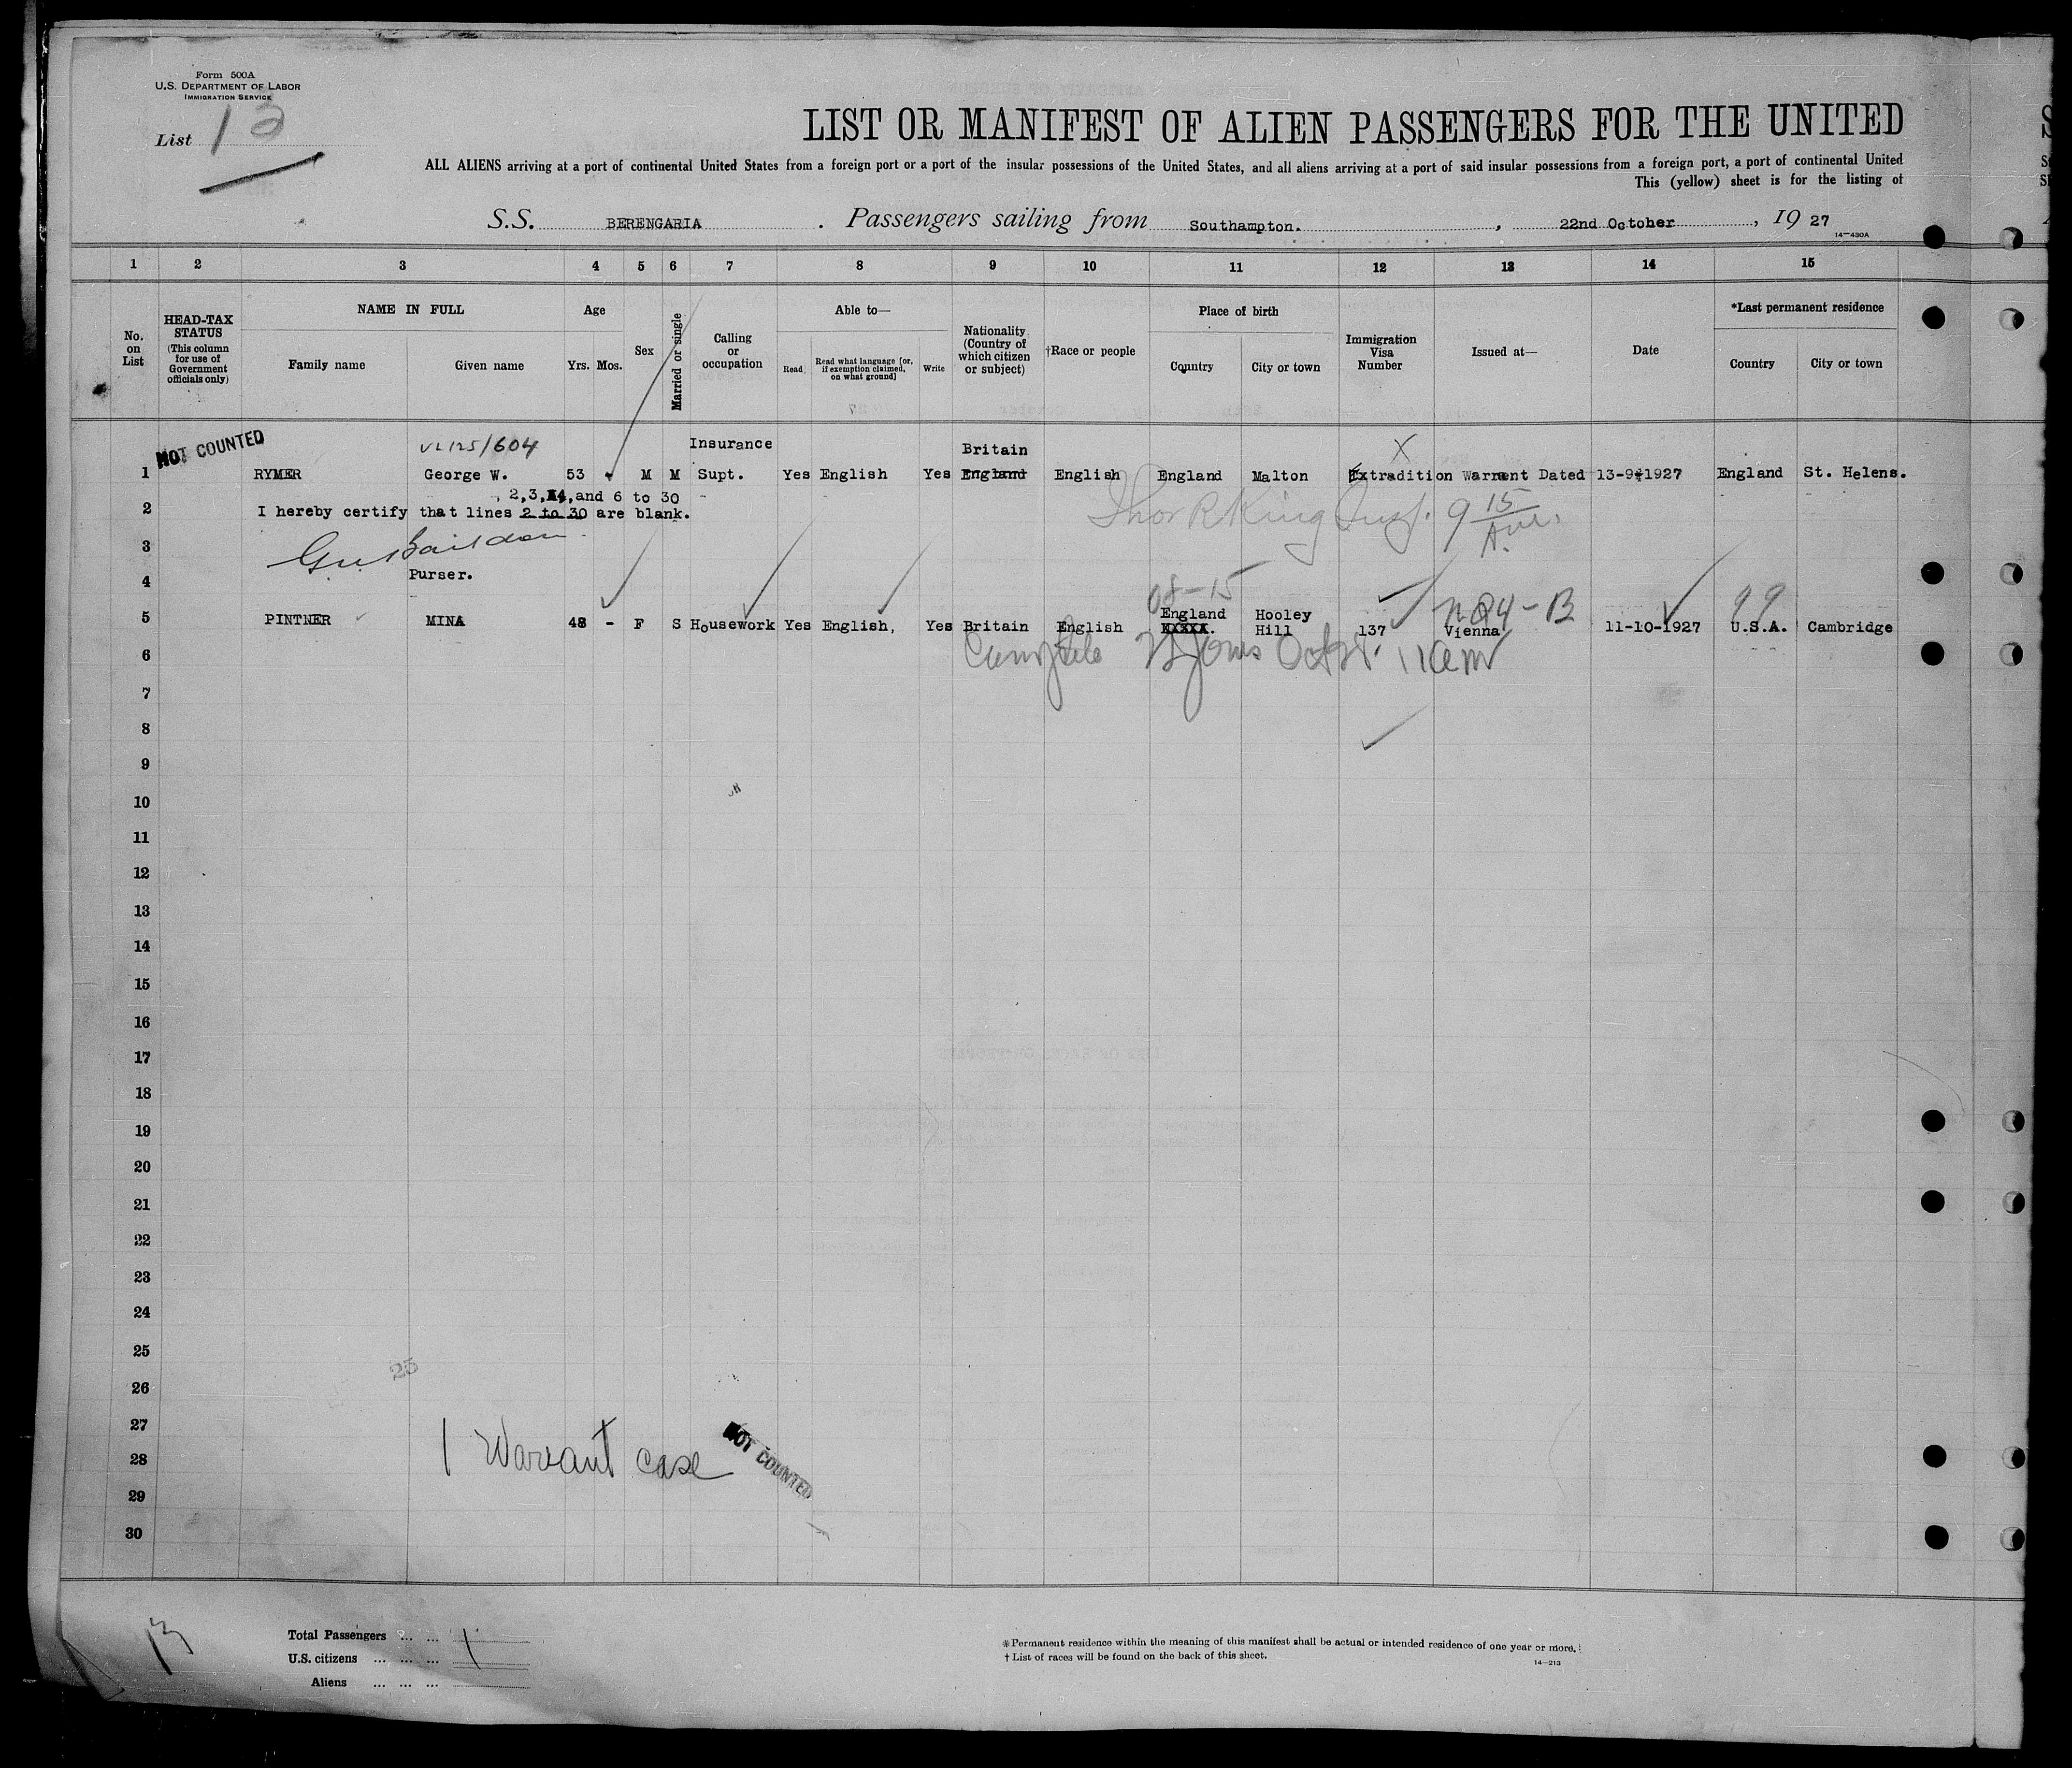 Form 500A
U.S. DEPARTMENT OF LABOR
IMMIGRATION SERVICE
List 13
LIST OR MANIFEST OF ALIEN PASSENGERS FOR THE UNITED
ALL ALIENS arriving at a port of continental United States from a foreign port or a port of the insular possessions of the United States, and all aliens arriving at a port of said insular possessions from a foreign port, a port of continental United
This (yellow) sheet is for the listing of
S.S. BERENGARIA. Passengers sailing from Southampton. , 22nd October , 19 27
14—430A
1 2 3 4 5 6 7 8 9 10 11 12 13 14 15
No. on List
HEAD-TAX STATUS (This column for use of Government officials only)
NAME IN FULL
Family name
Given name
Age
Yrs. Mos.
Sex
Married or single
Calling or occupation
Able to—
Read
Read what language [or, if exemption claimed, on what ground]
Write
Nationality (Country of which citizen or subject)
†Race or people
Place of birth
Country
City or town
Immigration Visa Number
Issued at—
Date
*Last permanent residence
Country
City or town
NOT COUNTED
125/604 Insurance Britain X
1 RYMER George W. 53 M M Supt. Yes English Yes England English England Malton Extradition Warrant Dated 13-9-1927 England St. Helens.
, 2,3,4,and 6 to 30
2 I hereby certify that lines 2 to 30 are blank. Thor R King Insp. 9 15 A.M.
3
4 Purser.
08-15 99
England Hooley
5 PINTNER MINA 48 - F S Housework Yes English, Yes Britain English XXXXX. Hill 137 Vienna 11-10-1927 U.S.A. Cambridge
6 11 am
7
8
9
10
11
12
13
14
15
16
17
18
19
20
21
22
23
24
25
25
26
27
28 1 Warrant case NOT COUNTED
29
30
13
Total Passengers ... ...
U.S. citizens ... ... ... 1
Aliens ... ... ...
*Permanent residence within the meaning of this manifest shall be actual or intended residence of one year or more.
† List of races will be found on the back of this sheet.
14—213